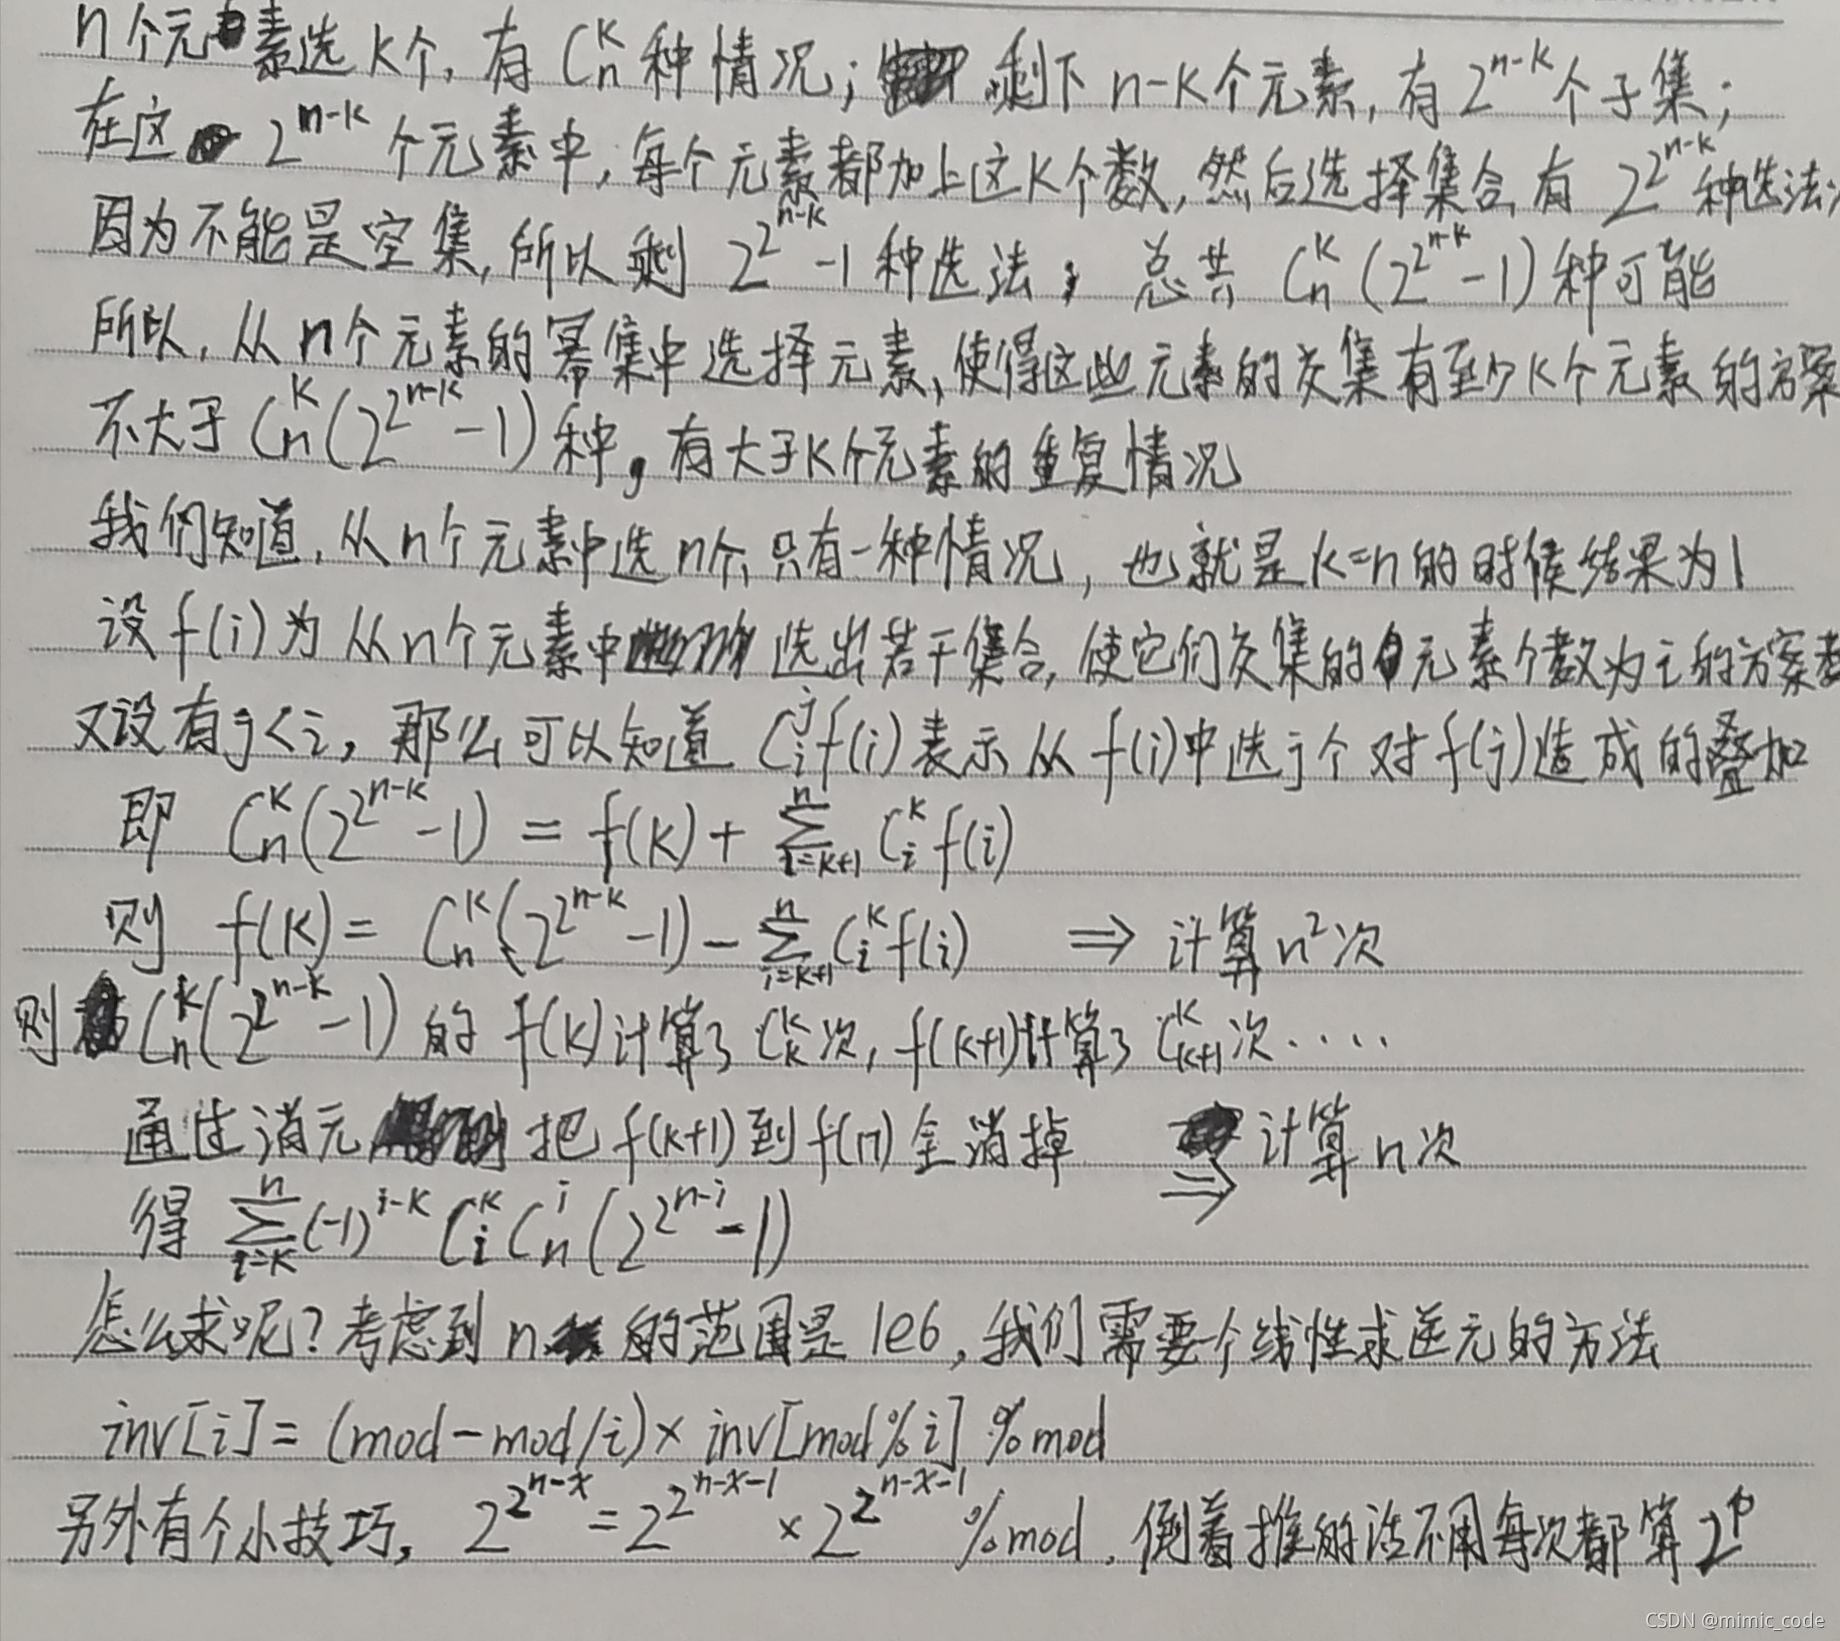 n个元素选k个,有C_n^k种情况;剩下n-k个元素,有2^{n-k}个子集;
在这2^{n-k}个元素中,每个元素都加上这k个数,然后选择集合,有2^{2^{n-k}}种选法,
因为不能是空集,所以剩2^{2^{n-k}}-1种选法;总共C_n^k(2^{2^{n-k}}-1)种可能
所以,从n个元素的幂集中选择元素,使得这些元素的交集有至少k个元素的方案
不大于C_n^k(2^{2^{n-k}}-1)种,有大于k个元素的重复情况
我们知道,从n个元素中选n个,只有一种情况,也就是k=n的时候结果为1
设f(i)为从n个元素中选出若干集合,使它们交集的元素个数为i的方案
又设有j<i,那么可以知道C_i^j f(i)表示从f(i)中选j个对f(j)造成的叠加
即 C_n^k(2^{2^{n-k}}-1)=f(k)+∑_{i=k+1}^n C_i^k f(i)
则 f(k)=C_n^k(2^{2^{n-k}}-1)-∑_{i=k+1}^n C_i^k f(i) ⇒ 计算n^2次
则C_n^k(2^{2^{n-k}}-1)的f(k)计算了C_k^k次,f(k+1)计算了C_{k+1}^k次....
通过消元把f(k+1)到f(n)全消掉 ⇒ 计算n次
得 ∑_{i=k}^n (-1)^{i-k} C_i^k C_n^i (2^{2^{n-i}}-1)
怎么求呢?考虑到n的范围是1e6,我们需要一个线性求逆元的方法
inv[i]=(mod-mod/i)×inv[mod%i]%mod
另外有个小技巧,2^{2^{n-x}}=2^{2^{n-x-1}}×2^{2^{n-x-1}}%mod,倒着推的话不用每次都算2^p
CSDN @mimic_code